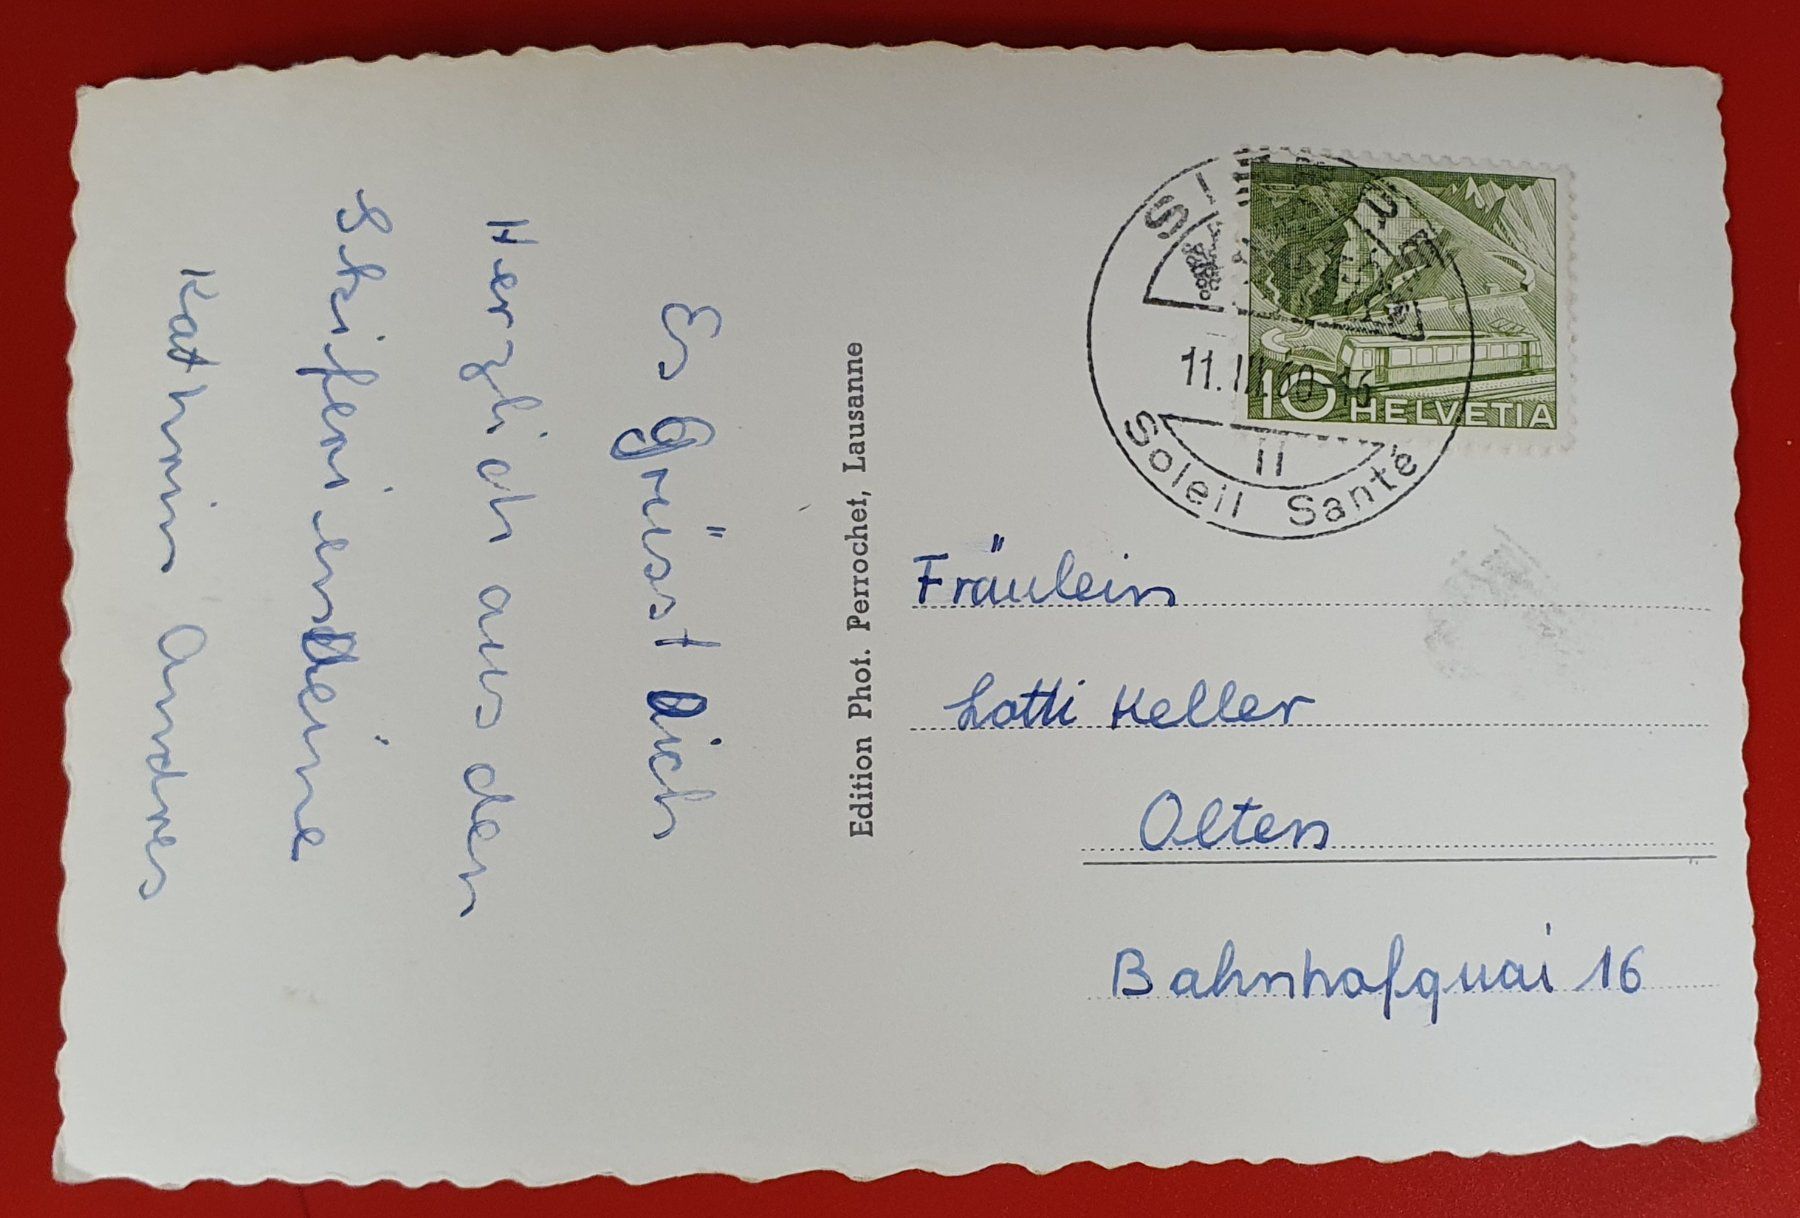 Es Grüsst Dich
Herzlich aus den
Skiferien deine
Kathrin Andres
Edition Phot. Perrochet, Lausanne
11. 60 - 16
II
Soleil Santé
10 HELVETIA
Fräulein
Lotti Keller
Olten
Bahnhofquai 16